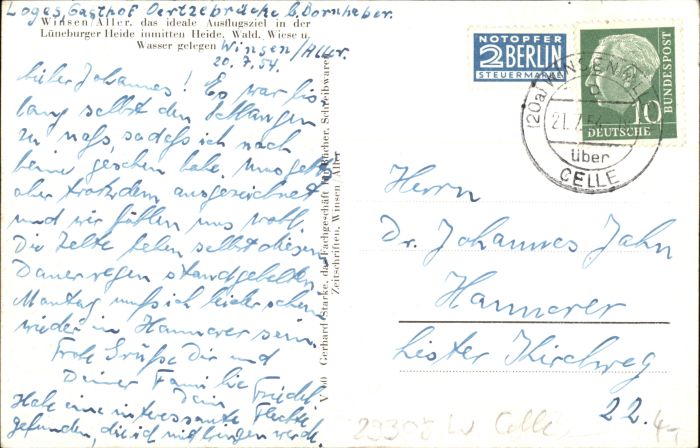 Loges Gasthof Oertzebrücke b. Bornheber.
Winsen/Aller, das ideale Ausflugsziel in der
Lüneburger Heide inmitten Heide, Wald, Wiese u.
Wasser gelegen
Winsen/Aller.
20.7.54.
Lieber Johannes! Es war bis
lang selbst den Schlangen
zu naß, sodaß ich noch
keine gesehen habe. Uns geht
aber trotzdem ausgezeichnet
und wir fühlen uns wohl.
Die Zelte haben selbst diesen
Dauerregen standgehalten
Montag muß ich leider schon
wieder in Hannover sein.
Frohe Grüße Dir und
Deiner Familie
Dein Friedel
Habe eine interessante Flechte
gefunden, die ich mitbringen werde.
V 140 Gerhard Starke, das Fachgeschäft für Bücher, Schreibwaren
Zeitschriften, Winsen/Aller
NOTOPFER
2 BERLIN
STEUERMARKE
DEUTSCHE BUNDESPOST
10
(20a) WINSEN (ALLER)
21.7.54
über
CELLE
Herrn
Dr. Johannes Jahn
Hannover
Lister Kirchweg
22.
Celle
4,-